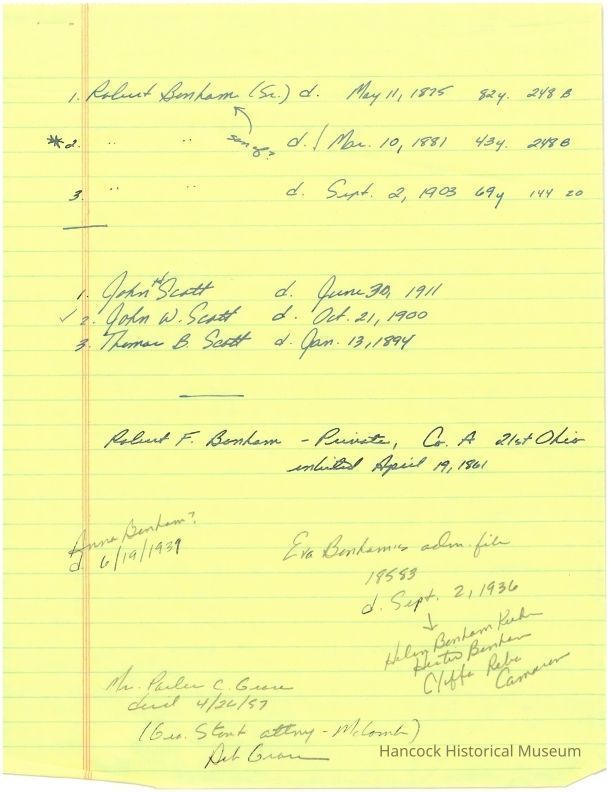 1. Robert Bonham (Sr.) d. May 11, 1875 82y. 248 B
son of?
*2. " " d. Mar. 10, 1881 43y. 248 B
3. " " d. Sept. 2, 1903 69y 144 20
1. John Scott d. June 30, 1911
✓ 2. John W. Scott d. Oct. 21, 1900
3. Thomas B. Scott d. Jan. 13, 1894
Robert F. Bonham - Private, Co. A 21st Ohio
enlisted April 19, 1861
Anna Bonham?
d. 6/19/1939
Eva Bonham's adm. file
18583
d. Sept. 2, 1936
Helen Bonham
Hester Bonham
Cliffa Reba
Cameron
Mr. C.
4/26/57
(Geo. attny - McComb)
Deb
Hancock Historical Museum